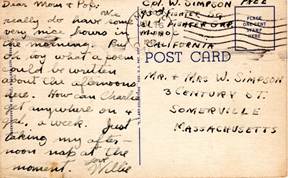 Dear Mom & Pop,
We
really do have some
very nice hours in
the morning. But
oh boy what a poem
could be written
about the afternoons
here. How can Charlie
get anywhere on
a week. Just
taking my after-
noon nap at the
moment. Love
Willie
W. SIMPSON
FREE
CALIFORNIA
POST CARD
MR. & MRS W. SIMPSON
3 CENTURY ST.
SOMERVILLE
MASSACHUSETTS